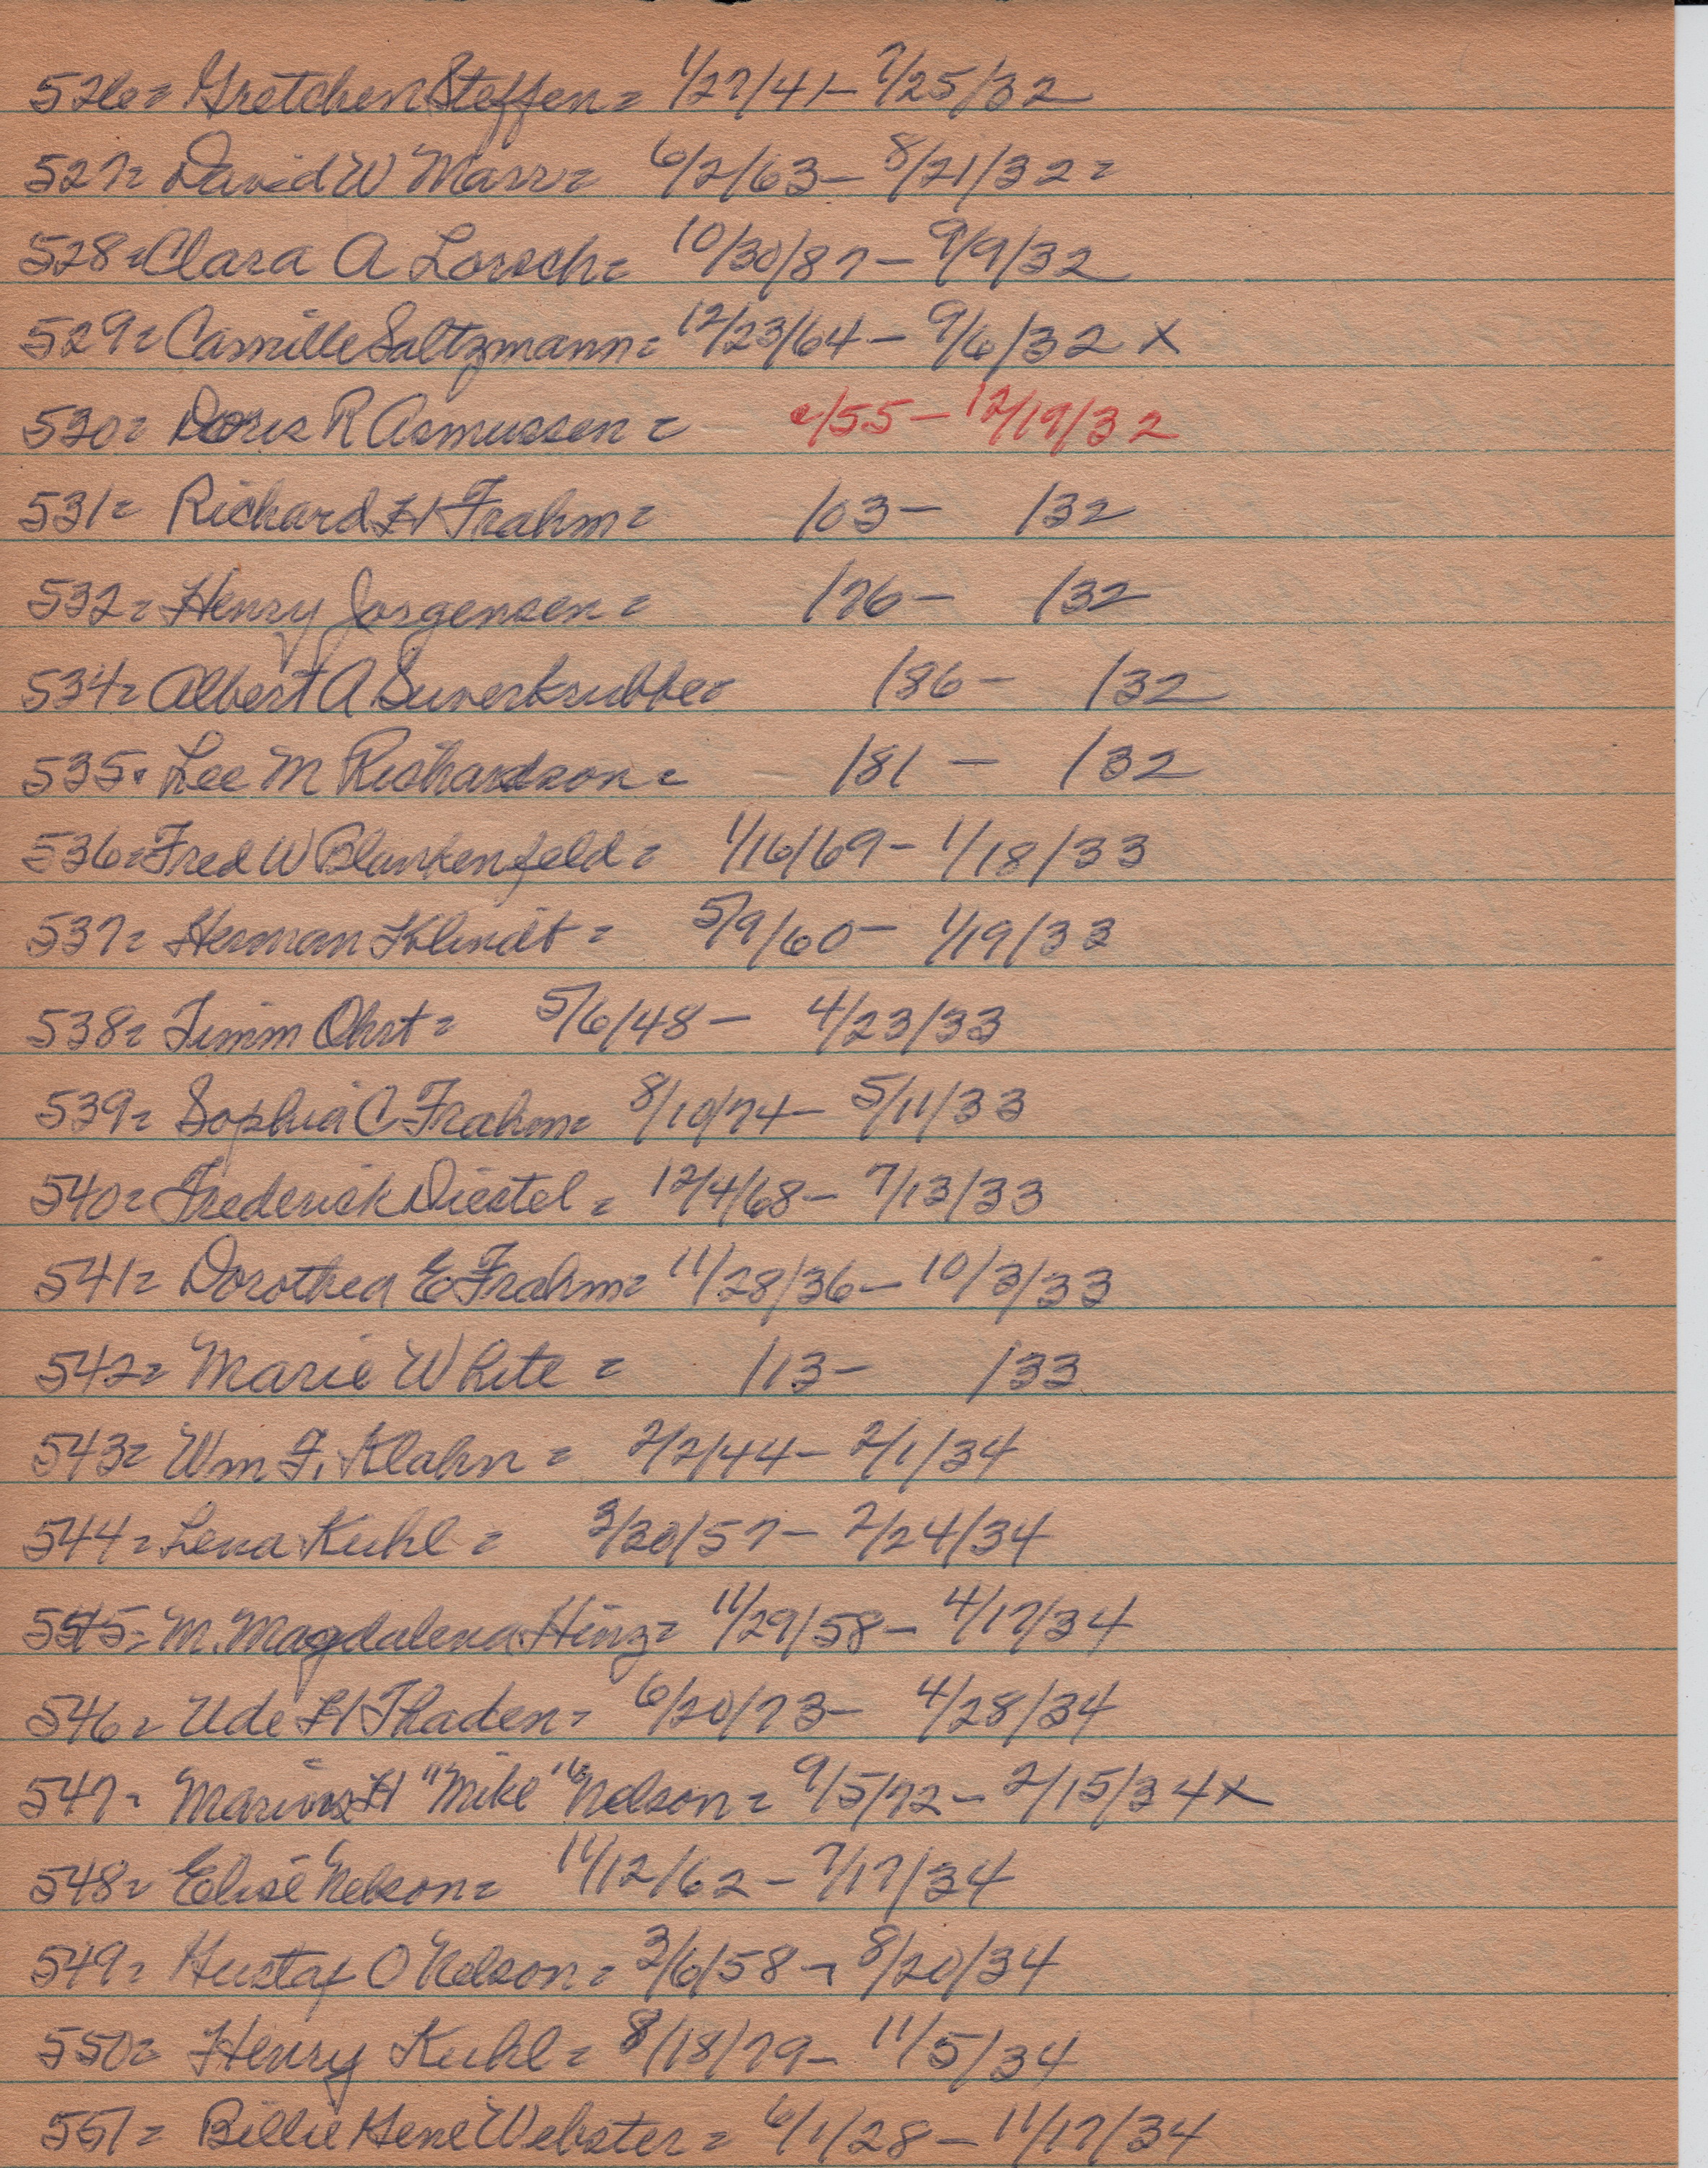 526= Gretchen Steffen= 1/27/41- 7/25/32
527= David W Marr= 6/2/63- 8/21/32=
528=Clara A Lorsch= 10/30/87- 9/9/32
529= Camille Saltzmann= 12/23/64- 9/6/32 X
530= Doris R Asmussen= /55- 12/19/32
531= Richard H Frahm= /03- /32
532= Henry Jorgensen= /76- /32
534= Albert A Suverkrubbe= /86- /32
535= Lee M Richardson= /81 - /32
536=Fred W Blankenfeld= 1/16/69- 1/18/33
537= Herman Klindt= 5/9/60- 1/19/33
538= Timm Ohrt= 5/6/48- 4/23/33
539= Sophia C Frahm= 8/10/74- 5/11/33
540= Frederick Diestel= 12/4/68- 7/13/33
541= Dorothea E Frahm= 11/28/36- 10/3/33
542= Marie White= /13- /33
543= Wm F. Klahn= 2/2/44- 2/1/34
544= Lena Kuhl= 3/30/57- 2/24/34
545= M. Magdalena Hinz= 11/29/58- 4/17/34
546= Ude H Thaden= 6/20/73- 4/28/34
547= Marius H "Mike" Nelson= 9/5/72- 2/15/34 X
548= Elise Nelson= 11/12/62- 7/17/34
549= Gustaf O Nelson= 3/6/58- 8/20/34
550= Henry Kuhl= 8/18/79- 11/5/34
551= Billie Gene Webster= 6/1/28- 11/17/34